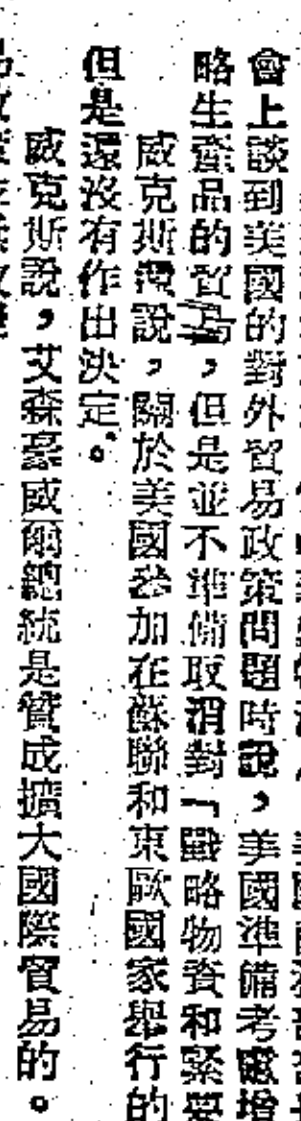 會上談到美國的對外貿易政策問題時說，美國準備考慮增
略生產品的貿易，但是並不準備取消對「戰略物資和緊要
威克斯還說，關於美國參加在蘇聯和東歐國家舉行的
但是還沒有作出決定。
威克斯說，艾森豪威爾總統是贊成擴大國際貿易的。